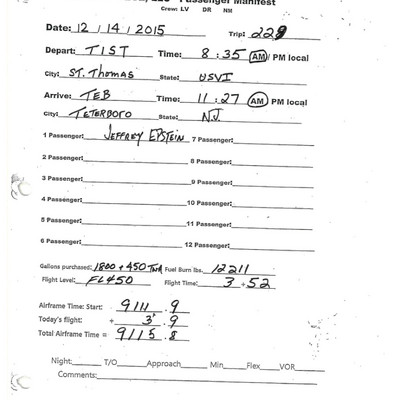 LLC Passenger Manifest
Crew: LV DR NM
Date: 12 / 14 / 2015 Trip: 229
Depart: TIST Time: 8 : 35 AM / PM local
City: ST. Thomas State: USVI
Arrive: TEB Time: 11 : 27 AM / PM local
City: TETERBORO State: N.J.
1 Passenger: JEFFREY EPSTEIN 7 Passenger:
2 Passenger: 8 Passenger:
3 Passenger: 9 Passenger:
4 Passenger: 10 Passenger:
5 Passenger: 11 Passenger:
6 Passenger: 12 Passenger:
Gallons purchased: 1800 + 450 Fuel Burn lbs. 12211
Flight Level: FL450 Flight Time: 3 + 52
Airframe Time: Start: 9111 . 9
Today's flight: + 3 . 9
Total Airframe Time = 9115 . 8
Night: T/O Approach Min Flex VOR
Comments: